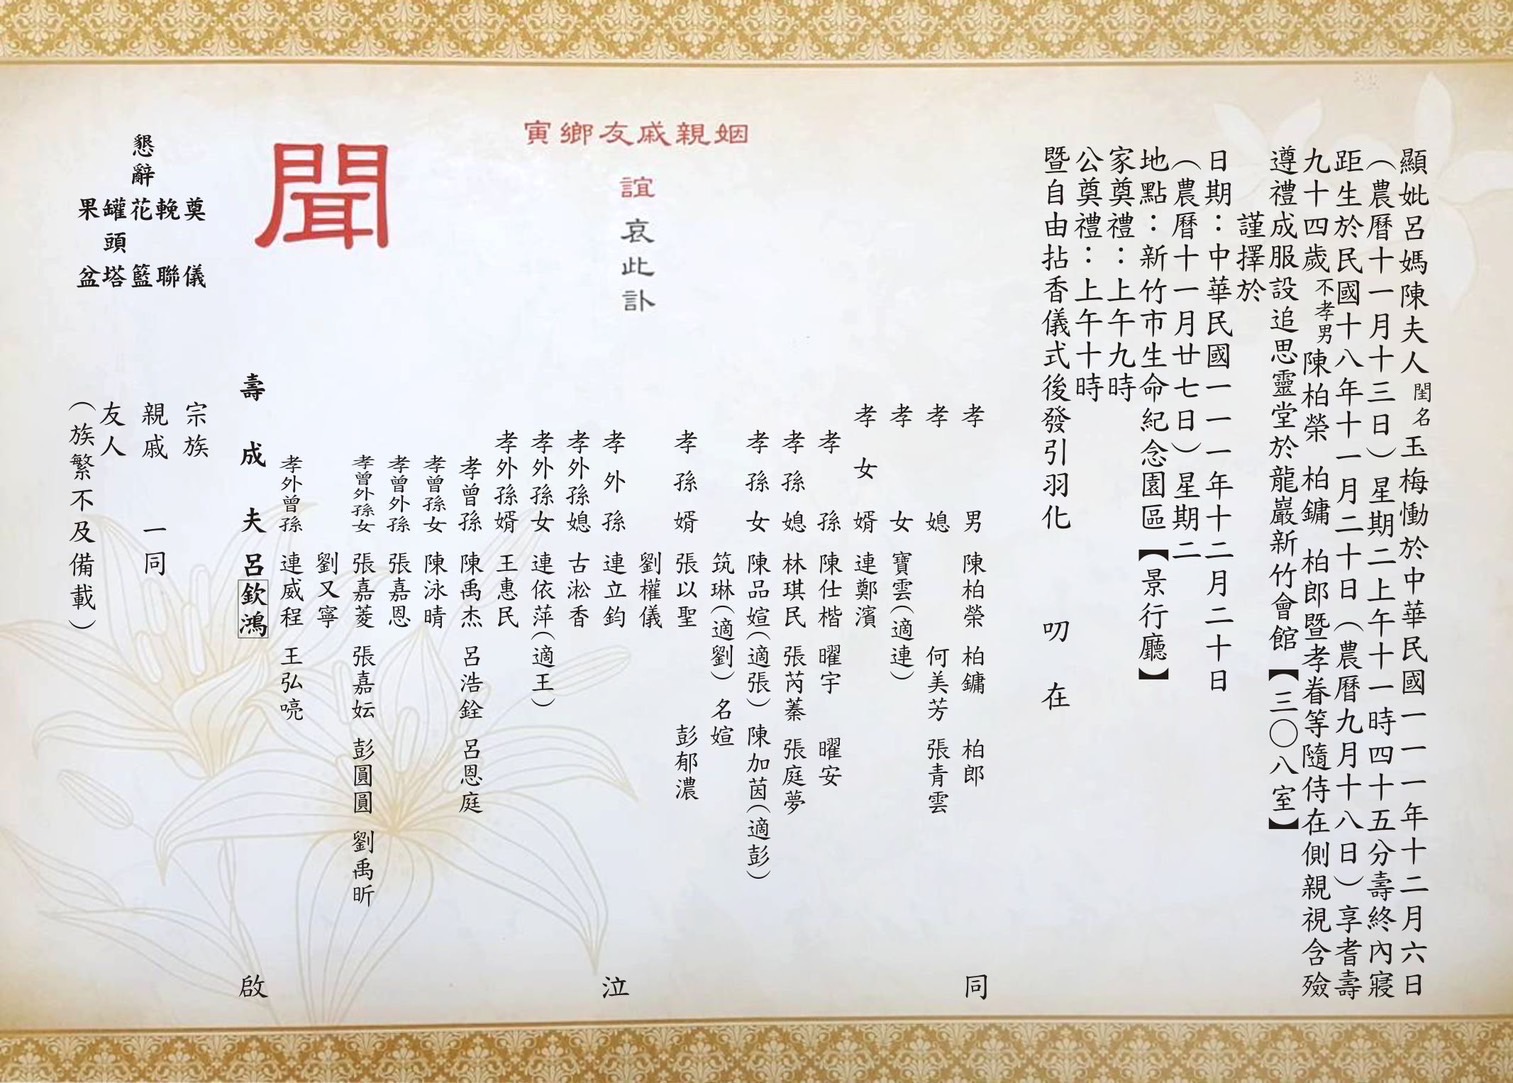 顯妣呂媽陳夫人閨名玉梅慟於中華民國一一一年十二月六日
（農曆十一月十三日）星期二上午十一時四十五分壽終內寢
距生於民國十八年十一月二十日（農曆九月十八日）享耆壽
九十四歲不孝男陳柏榮 柏鏞 柏郎暨孝眷等隨侍在側親視含殮
遵禮成服設追思靈堂於龍巖新竹會館【三〇八室】
謹擇於
日期：中華民國一一一年十二月二十日
（農曆十一月廿七日）星期二
地點：新竹市生命紀念園區【景行廳】
家奠禮：上午九時
公奠禮：上午十時
暨自由拈香儀式後發引羽化 叨在
姻親戚友鄉寅
誼 哀此訃
聞
孝男 陳柏榮 柏鏞 柏郎 同
孝媳 何美芳 張青雲
孝女 寶雲（適連）
孝女婿 連鄭濱
孝孫 陳仕楷 曜宇 曜安
孝孫媳 林琪民 張芮蓁 張庭夢
孝孫女 陳品媗（適張） 陳加茵（適彭）
筑琳（適劉） 名媗
孝孫婿 張以聖 彭郁濃
劉權儀
孝外孫 連立鈞 泣
孝外孫媳 古淞香
孝外孫女 連依萍（適王）
孝外孫婿 王惠民
孝曾孫 陳禹杰 呂浩銓 呂恩庭
孝曾孫女 陳泳晴
孝曾外孫 張嘉恩
孝曾外孫女 張嘉菱 張嘉妘 彭圓圓 劉禹昕
劉又寧
孝外曾孫 連威程 王弘喨
壽成夫 呂欽鴻 啟
宗族
親戚 一同
友人
（族繁不及備載）
懇辭
奠儀
輓聯
花籃
罐頭塔
果盆